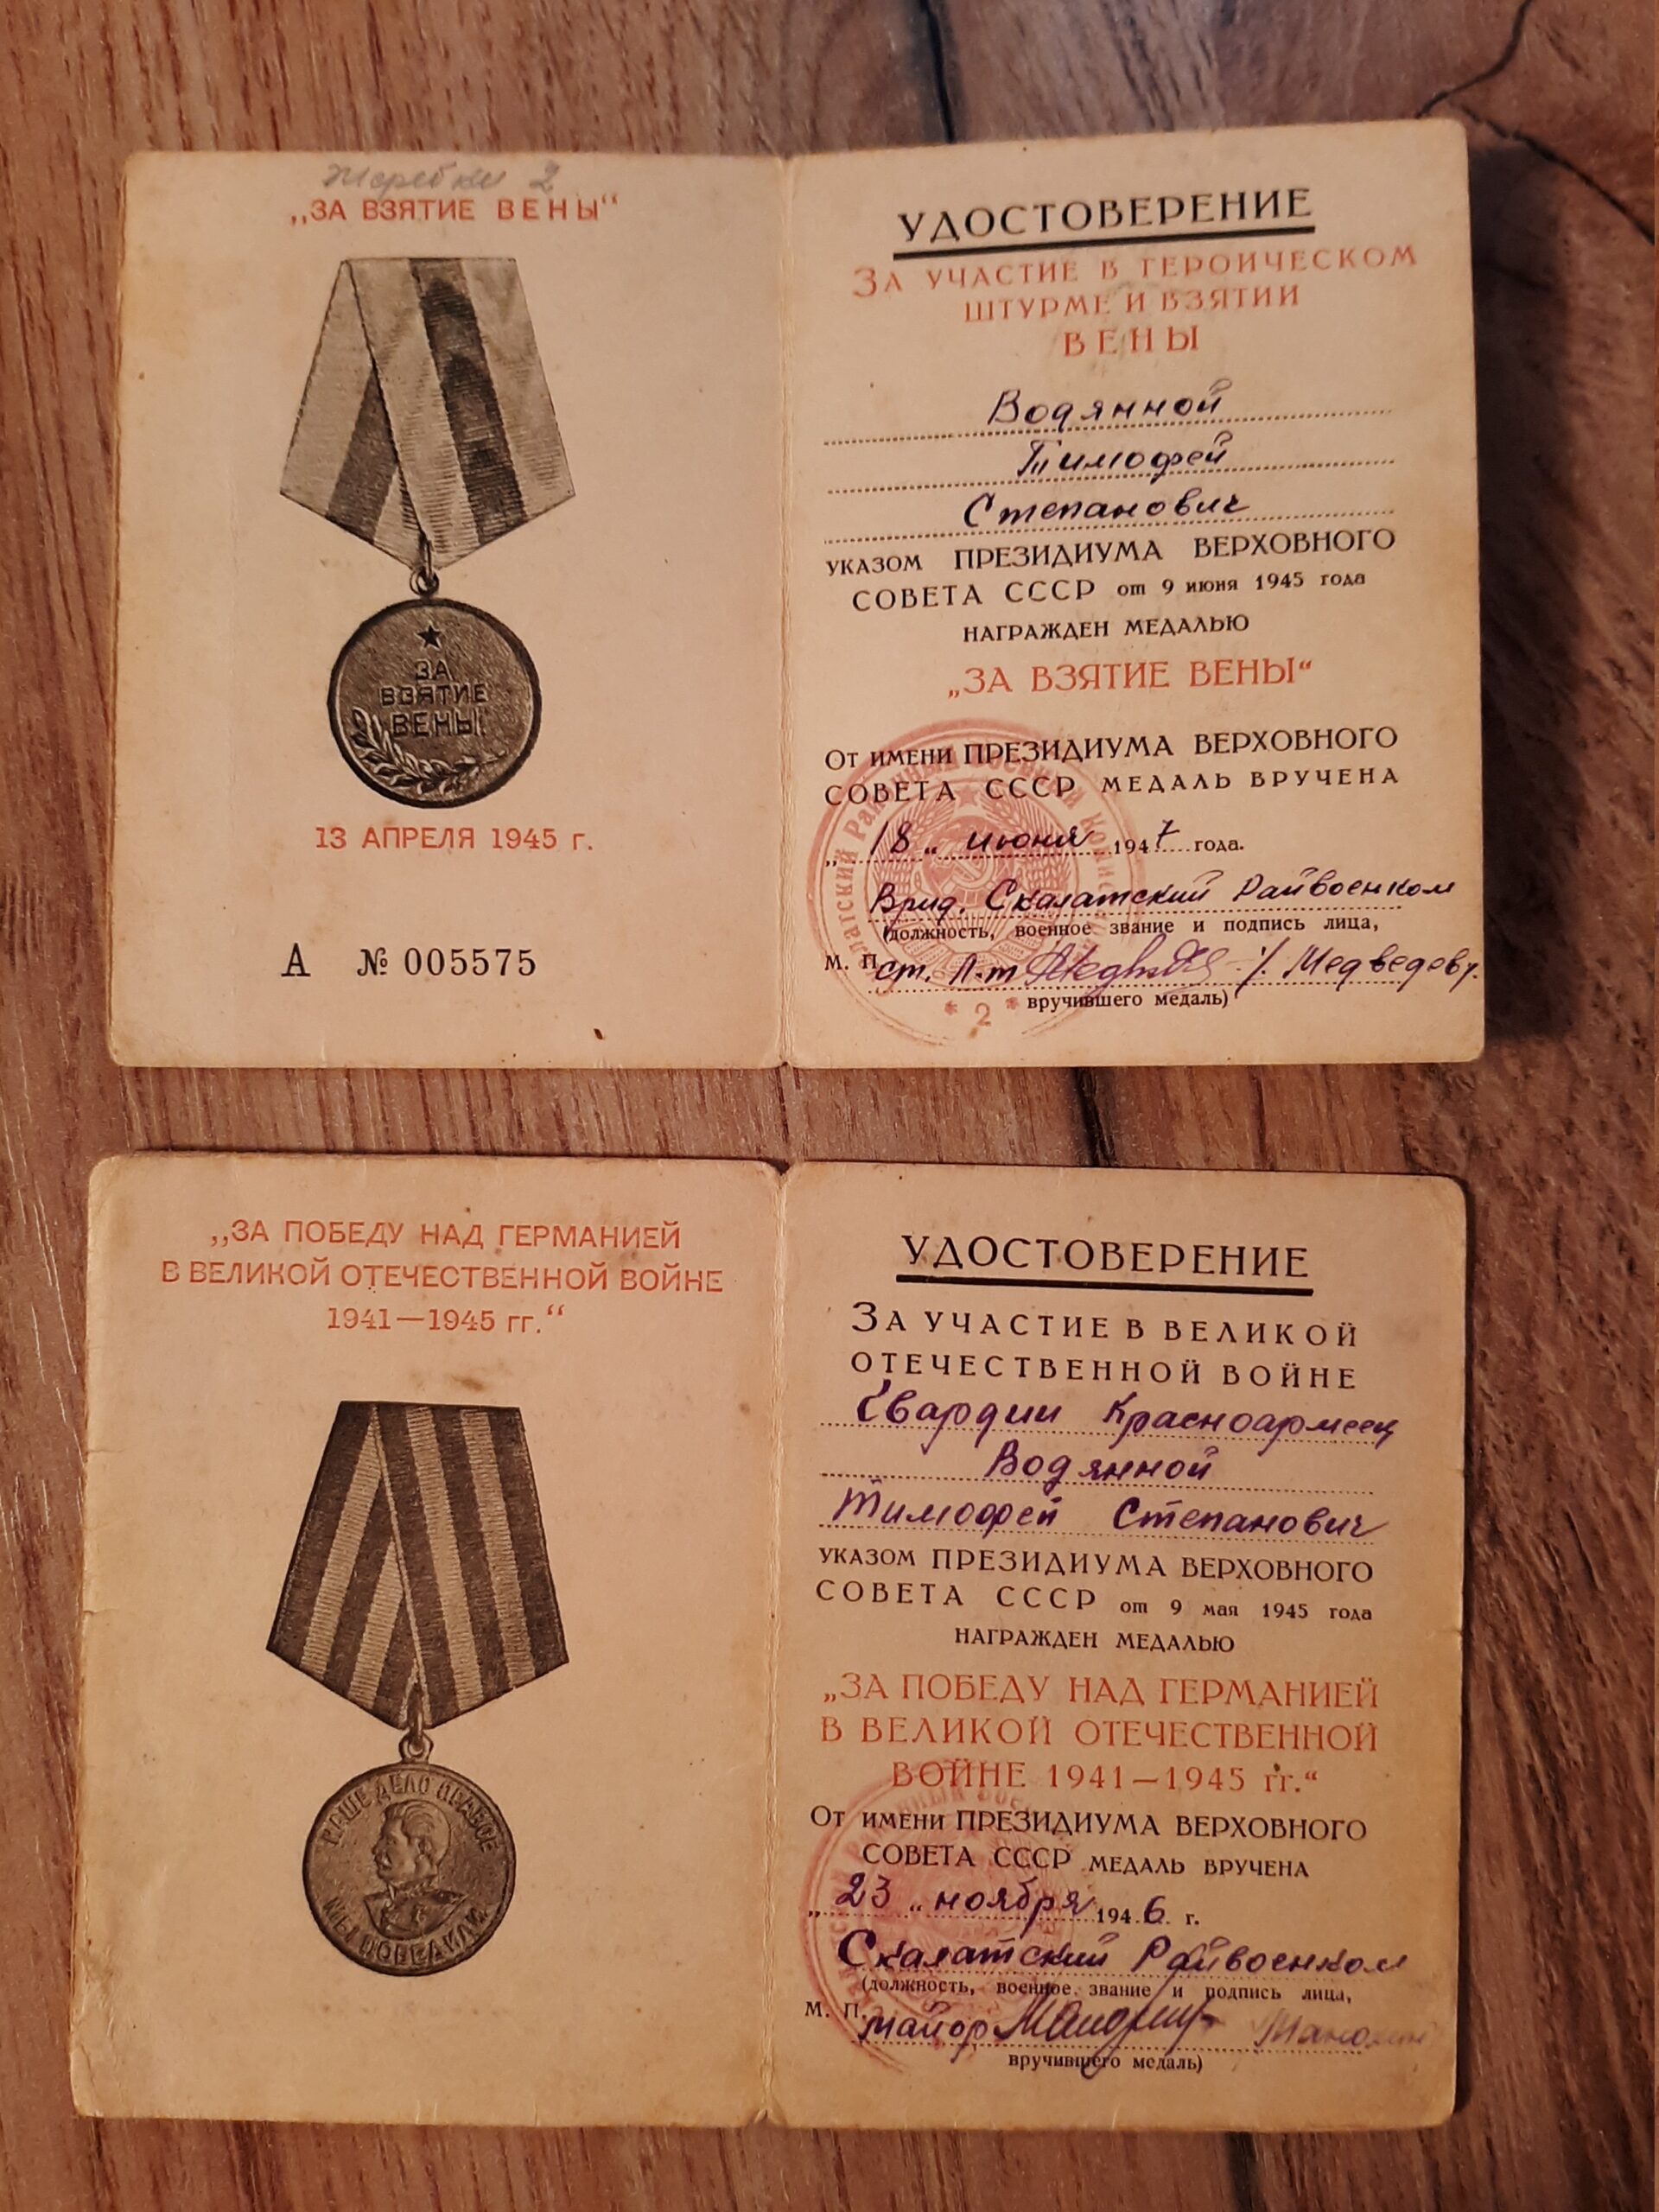 Жеребки 2
„ЗА ВЗЯТИЕ ВЕНЫ“
ЗА
ВЗЯТИЕ
ВЕНЫ
13 АПРЕЛЯ 1945 г.
А № 005575
УДОСТОВЕРЕНИЕ
ЗА УЧАСТИЕ В ГЕРОИЧЕСКОМ
ШТУРМЕ И ВЗЯТИИ
ВЕНЫ
Водянной
Тимофей
Степанович
УКАЗОМ ПРЕЗИДИУМА ВЕРХОВНОГО
СОВЕТА СССР от 9 июня 1945 года
НАГРАЖДЕН МЕДАЛЬЮ
„ЗА ВЗЯТИЕ ВЕНЫ“
ОТ ИМЕНИ ПРЕЗИДИУМА ВЕРХОВНОГО
СОВЕТА СССР МЕДАЛЬ ВРУЧЕНА
„18„ июня 1947 года.
Врид. Скалатский Райвоенком
(должность, военное звание и подпись лица,
М. П. ст. л-т /. Медведев/.
вручившего медаль)
* 2 *
„ЗА ПОБЕДУ НАД ГЕРМАНИЕЙ
В ВЕЛИКОЙ ОТЕЧЕСТВЕННОЙ ВОЙНЕ
1941—1945 гг.“
НАШЕ ДЕЛО ПРАВОЕ
МЫ ПОБЕДИЛИ
УДОСТОВЕРЕНИЕ
ЗА УЧАСТИЕ В ВЕЛИКОЙ
ОТЕЧЕСТВЕННОЙ ВОЙНЕ
Гвардии Красноармеец
Водянной
Тимофей Степанович
УКАЗОМ ПРЕЗИДИУМА ВЕРХОВНОГО
СОВЕТА СССР от 9 мая 1945 года
НАГРАЖДЕН МЕДАЛЬЮ
„ЗА ПОБЕДУ НАД ГЕРМАНИЕЙ
В ВЕЛИКОЙ ОТЕЧЕСТВЕННОЙ
ВОЙНЕ 1941—1945 гг.“
ОТ ИМЕНИ ПРЕЗИДИУМА ВЕРХОВНОГО
СОВЕТА СССР МЕДАЛЬ ВРУЧЕНА
„23„ ноября 1946 г.
Скалатский Райвоенком
(должность, военное звание и подпись лица,
М. П. майор
вручившего медаль)